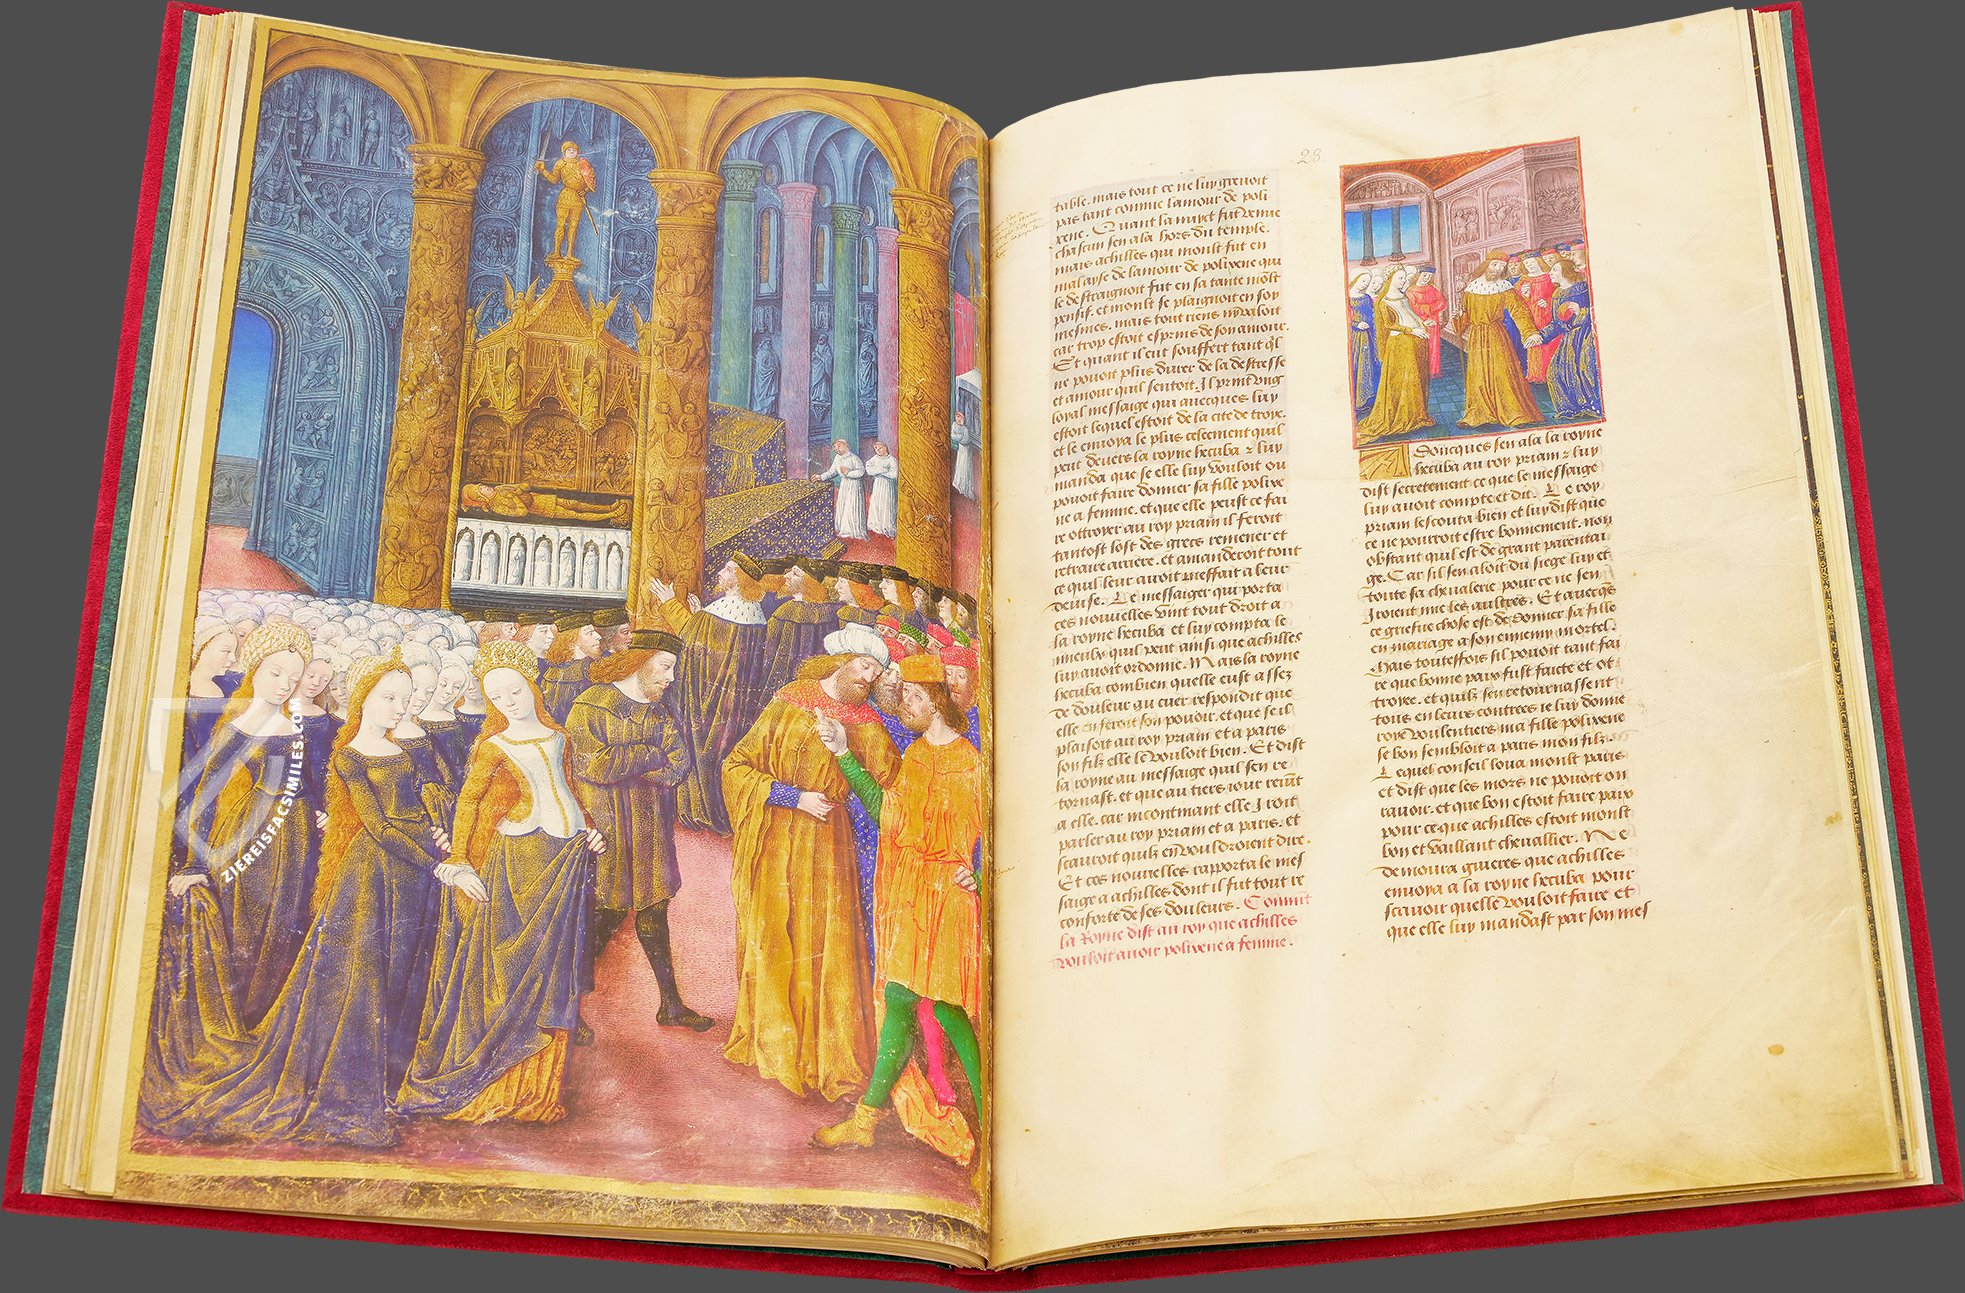 ZIEREISFACSIMILES.COM
28.
table. mais tout ce ne luy grevoit
pas tant comme lamour de poli
xene. Quant la nuyt fut venue
chascun sen ala hors du temple.
mais achilles qui moult fut en
malayse de lamour de polixene qui
le destraignoit fut en sa tante moult
pensif. et moult se plaignoit en soy
mesmes. mais tout riens ny valoit
car trop estoit esprins de son amour.
Et quant il eut souffert tant ql
ne pouoit plus durer de la destresse
et amour quil sentoit. Il print ung
loyal messaige qui avecques luy
estoit lequel estoit de la cite de troye.
et le envoya le plus celeement quil
peut devers la royne hecuba z luy
manda que se elle luy vouloit ou
pouoit faire donner sa fille polixe
ne a femme. et que elle peust ce fai
re ottroyer au roy priam il feroit
tantost lost des grecs remener et
retraire arriere. et amanderoit tout
ce quil leur avoit meffait a leur
devise. Le messaiger qui porta
ces nouvelles vint tout droit a
la royne hecuba et luy compta le
mieulx quil peut ainsi que achilles
luy avoit ordonne. Mais la royne
hecuba combien quelle eust assez
de douleur au cuer respondit que
elle en feroit son pouoir. et que se il
plaisoit au roy priam et a paris
son filz elle le vouloit bien. Et dist
la royne au messaige quil sen re
tornast. et que au tiers iour revint
a elle. car incontinant elle iroit
parler au roy priam et a paris. et
scauroit quilz en vouldroient dire.
Et ces nouvelles rapporta le mes
saige a achilles dont il fut tout re
conforte de ses douleurs. Comment
la Royne dist au roy que achilles
vouloit avoir polixene a femme.
Doncques sen ala la royne
hecuba au roy priam z luy
dist secretement ce que le messaige
luy avoit compte et dit. Le roy
priam lescouta bien et luy dist que
ce ne pourroit estre bonnement. non
obstant quil est de grant parentai
ge. Car sil sen aloit du siege luy et
toute sa chevalerie pour ce ne sen
iroient mie les aultres. Et avecqs
ce griefve chose est de donner sa fille
en mariage a son ennemy mortel.
Mais touteffois sil pouoit tant fai
re que bonne paix fust faicte et ot
troyee. et quilz sen retournassent
tous en leurs contrees ie luy donne
roye voulentiers ma fille polixene
se bon sembloit a paris mon filz.
Lequel conseil loua moult paris
et dist que les mors ne pouoit on
ravoir. et que bon estoit faire paix
pour ce que achilles estoit moult
bon et vaillant chevallier. Ne
demoura guieres que achilles
envoya a la royne hecuba pour
scavoir quelle vouloit faire et
que elle luy mandast par son mes